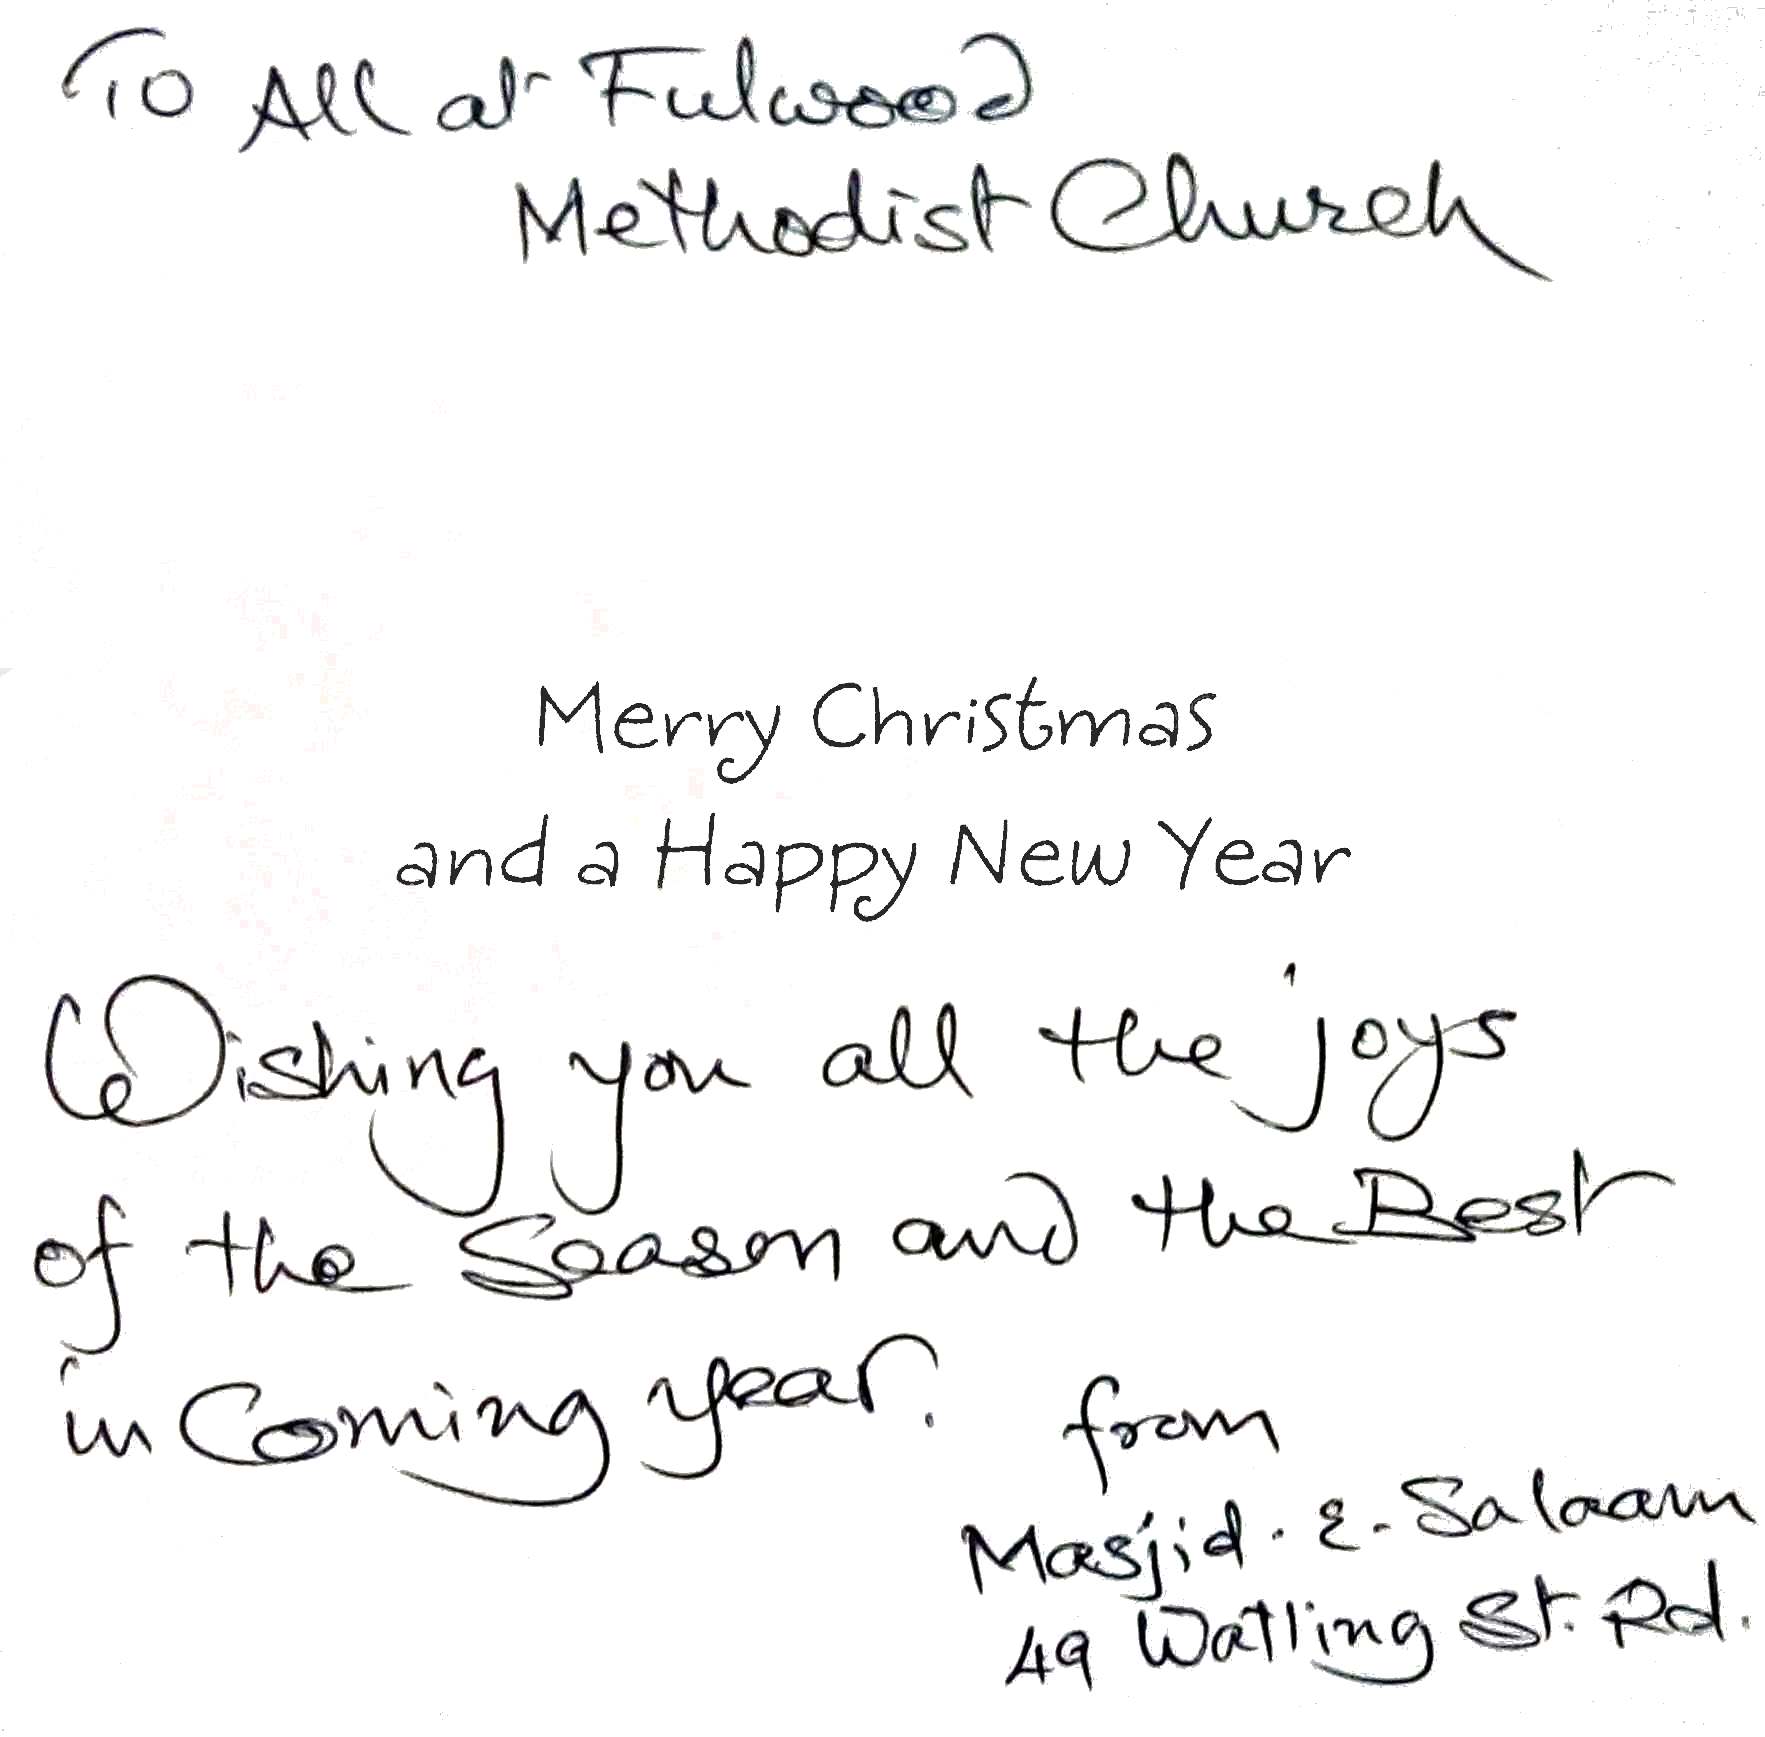 To All at Fulwood
Methodist Church
Merry Christmas
and a Happy New Year
Wishing you all the joys
of the Season and the Best
in Coming year. from
Masjid. E. Salaam
49 Watling St. Rd.